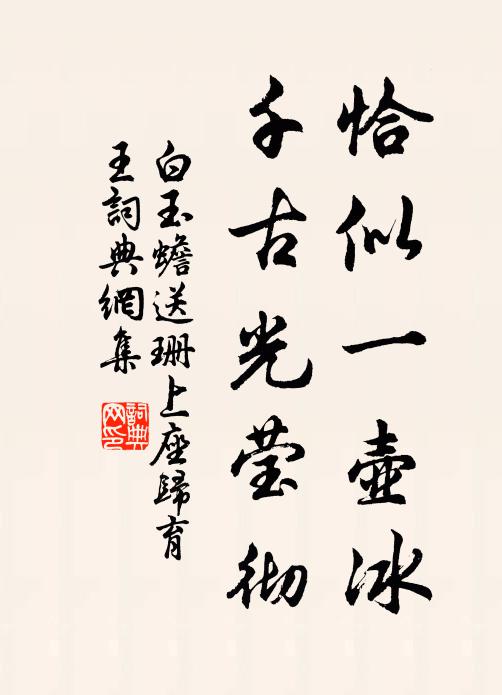 恰似一壺冰
千古光莹彻
白玉蟾送珊上座歸育
王詞典網集
詞典
网印